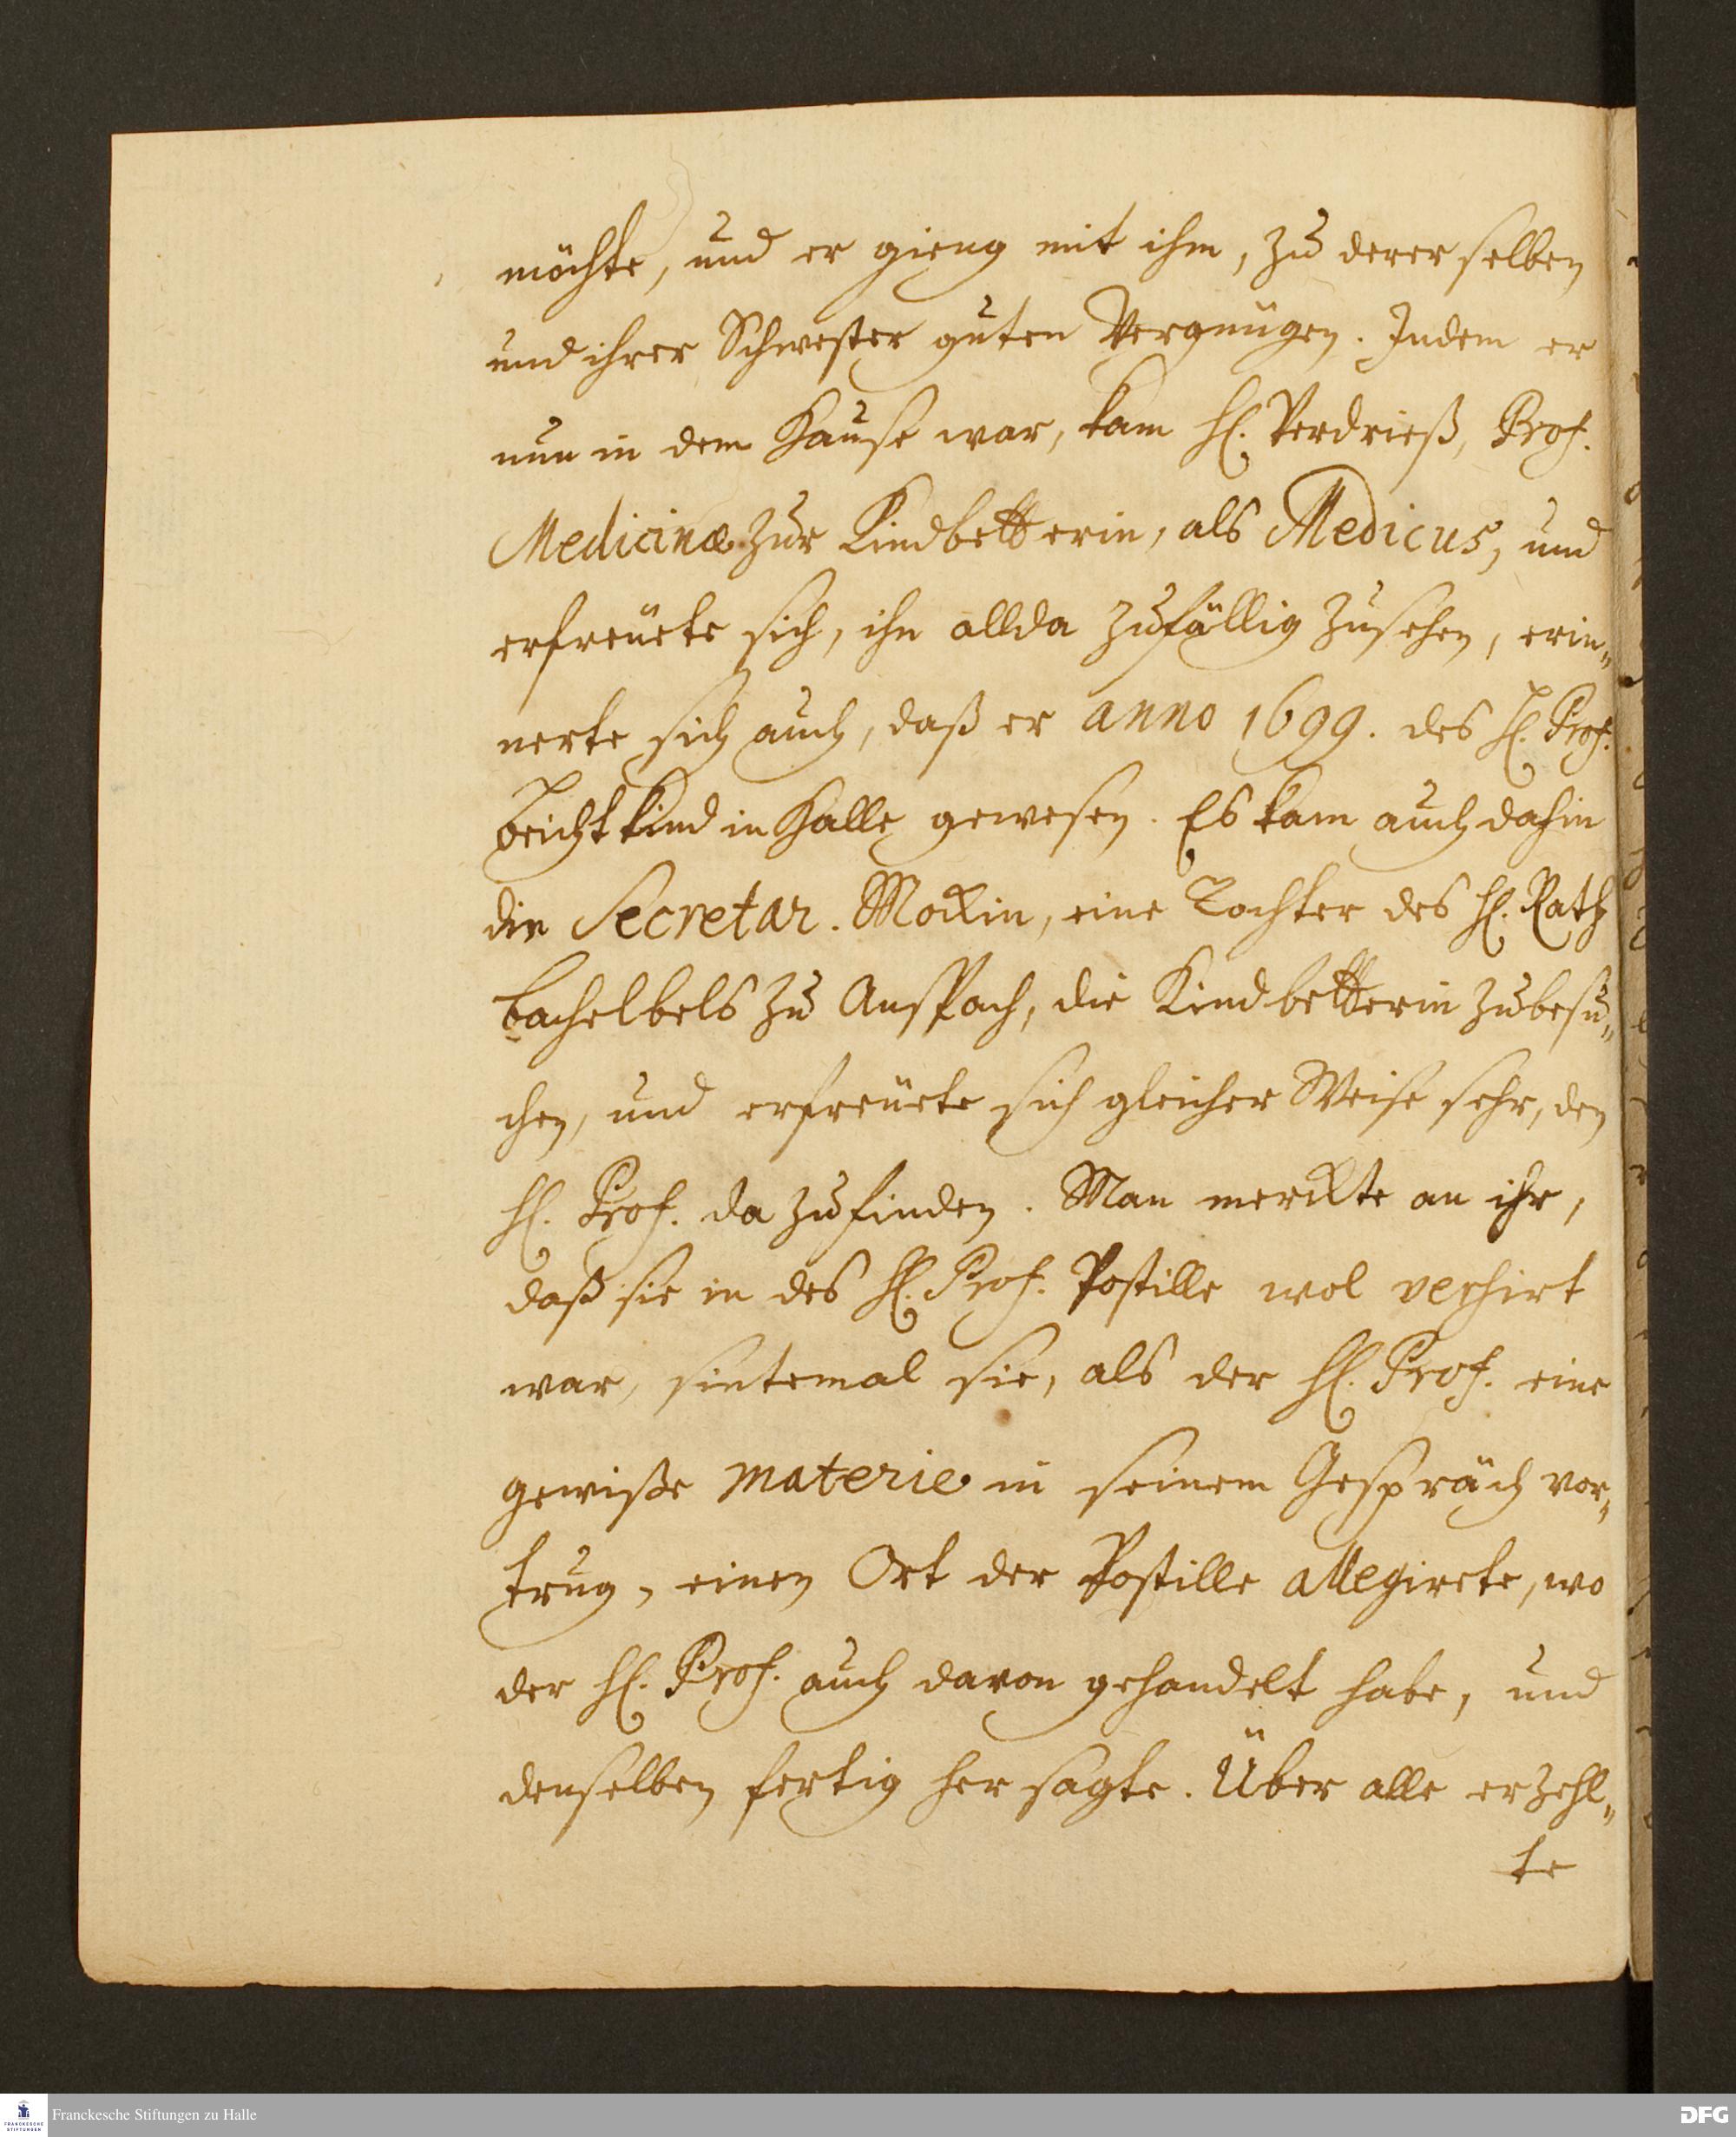 möchte, und er gieng mit ihm, zu derer selben
und ihrer Schwester guten Vergnügen. Indem er
nun in dem Hause war, kam H. Verdrieß, Prof.
Medicinæ zur Kindbetterin, als Medicus, und
erfreuete sich, ihn allda zufällig zusehen, erin„
nerte sich auch, daß er anno 1699. des H. Prof.
Beichtkind in Halle gewesen. Es kam auch dahin
die Secretar. Mockin, eine Tochter des H. Rath
Bachelbels zu Anspach, die Kindbetterin zubesu„
chen, und erfreuete sich gleicher Weise sehr, den
H. Prof. da zufinden. Man merckte an ihr,
daß sie in des H. Prof. Postille wol versirt
war, sintemal sie, als der H. Prof. eine
gewiße materie in seinem Gespräch vor„
trug, einen Ort der Postille allegirete, wo
der H. Prof. auch davon gehandelt habe, und
denselben fertig her sagte. Über alle erzehl„
te
Franckesche Stiftungen zu Halle
FRANCKESCHE
STIFTUNGEN
DFG